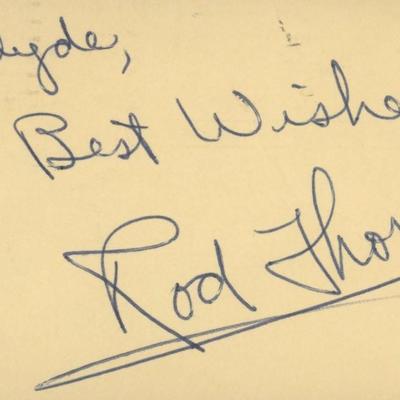 lyde,
Best Wishe
Rod Thor